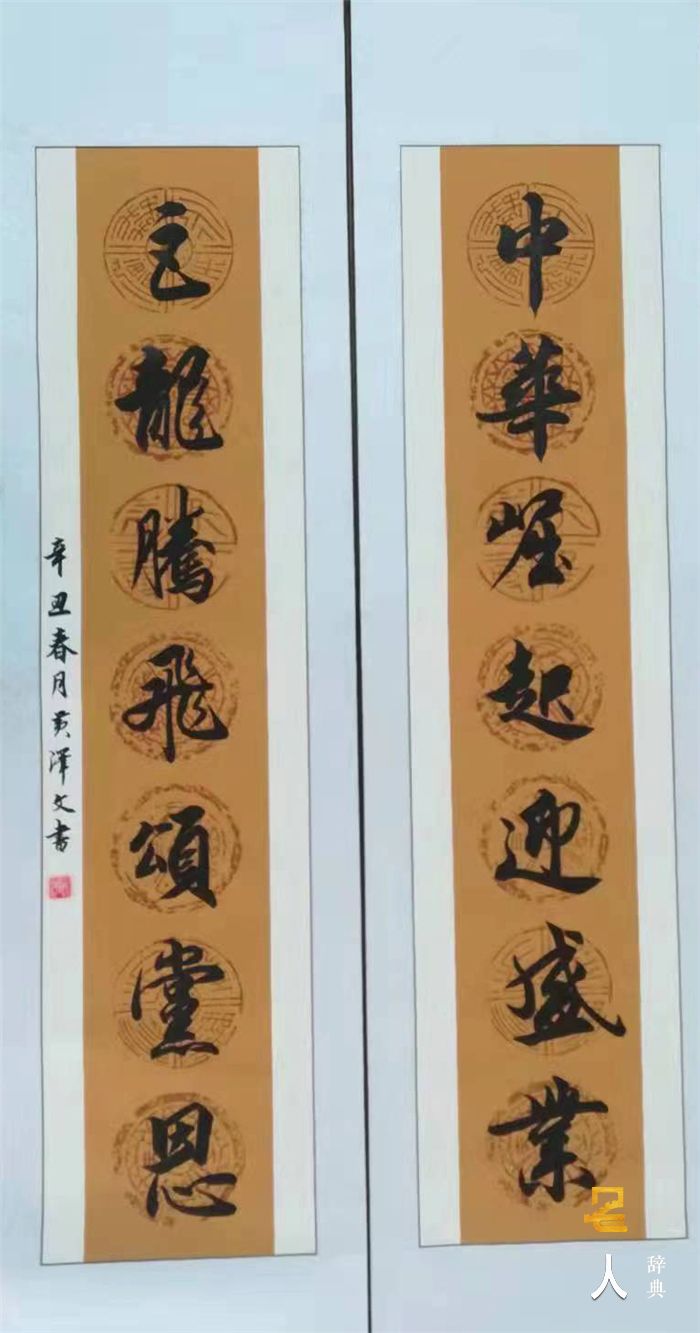 中華崛起迎盛業
巨龍騰飛頌黨恩
辛丑春月黄澤文書
名人辞典